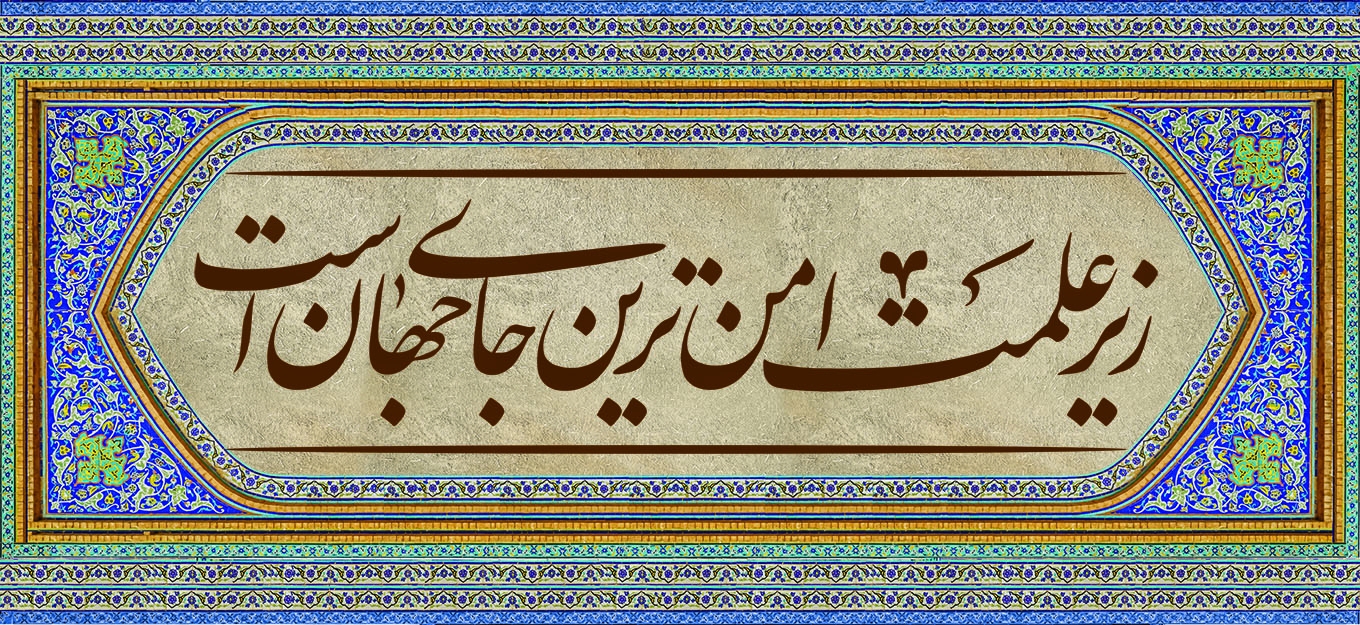 زیر علمت امن ترین جای جهان است